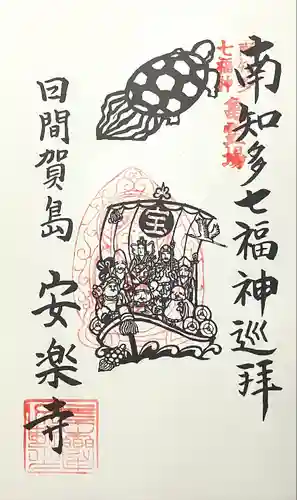 南知多七福神巡拝
七福神
亀霊場
宝
日間賀島 安楽寺